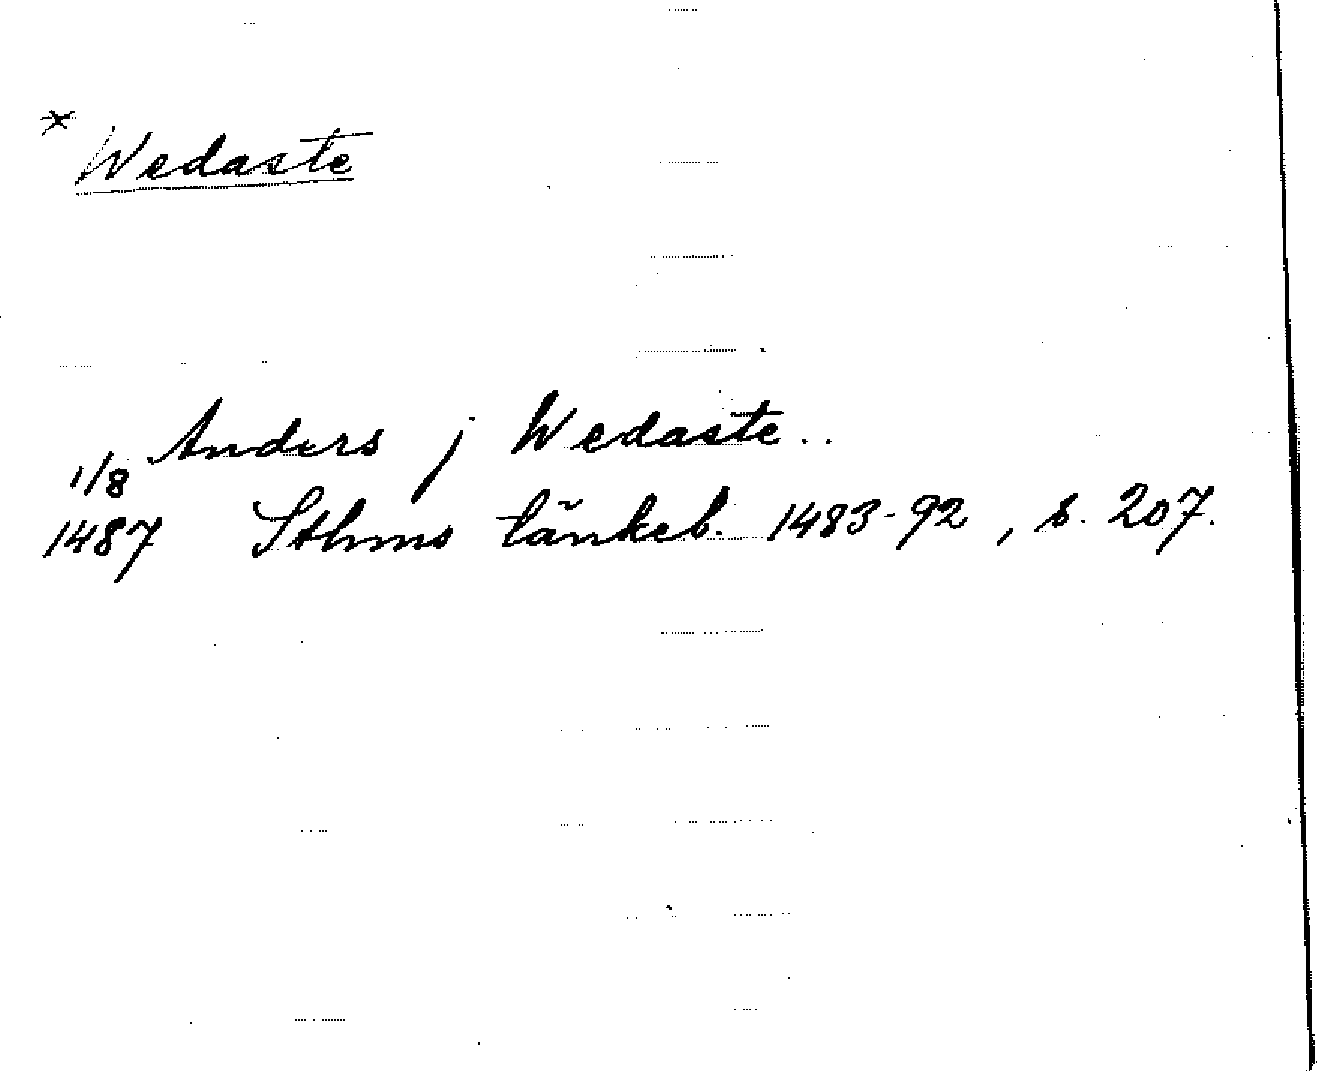 × Wedaste
Anders j Wedaste..
1/8
1487 Sthms tänkeb. 1483-92, s. 207.